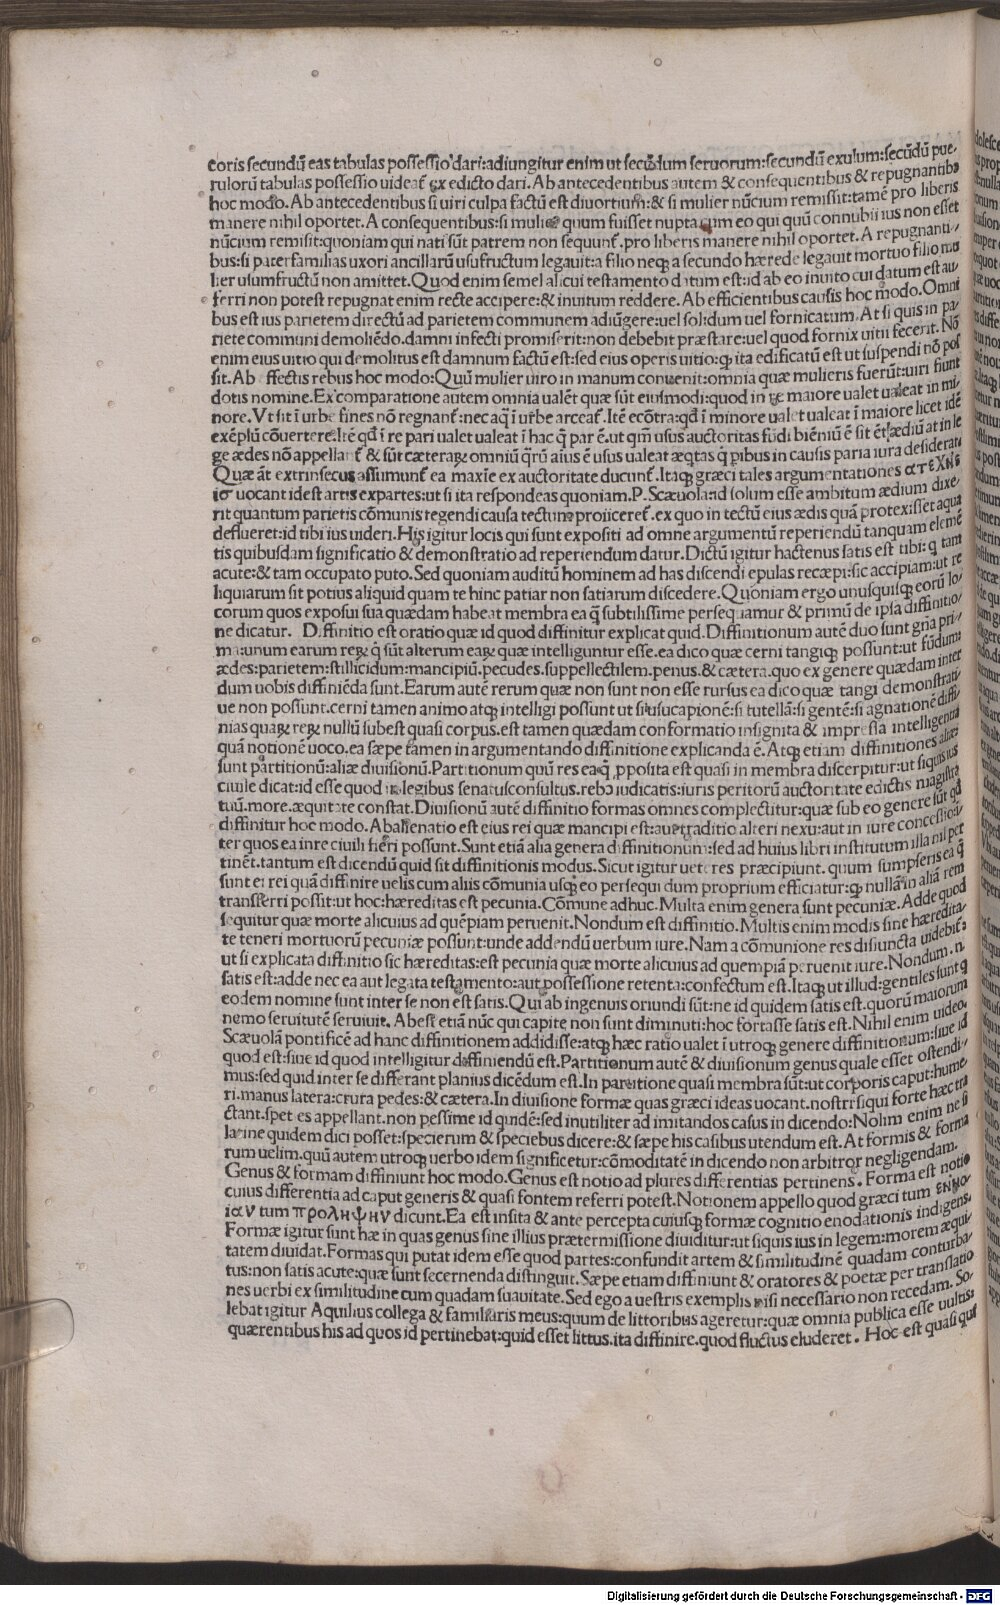 toris secundū eas tabulas possessio dari: adiungitur enim ut secūdum seruorum: secundū exulum: secūdū pue-
rulorū tabulas possessio uideat̄ ex edicto dari. Ab antecedentibus autem & consequentibus & repugnantibꝰ
hoc modo. Ab antecedentibus si uiri culpa factū est diuortium: & si mulier nūcium remissit: tamē pro liberis
manere nihil oportet. A consequentibus: si mulier quum fuisset nupta cum eo qui quū connubii ius non esset
nūcium remisit: quoniam qui nati sūt patrem non sequunt̄. pro liberis manere nihil oportet. A repugnanti-
bus: si paterfamilias uxori ancillarū usufructum legauit: a filio neqꝫ a secundo hærede legauit mortuo filio mu
lier usumfructū non amittet. Quod enim semel alicui testamento datum est: id ab eo inuito cui datum est au
ferri non potest repugnat enim recte accipere: & inuitum reddere. Ab efficientibus causis hoc modo. Omni
bus est ius parietem directū ad parietem communem adiūgere: uel solidum uel fornicatum. At si quis in pa
riete communi demoliēdo. damni infecti promiserit: non debebit præstare: uel quod fornix uitii fecerit. Nō
enim eius uitio qui demolitus est damnum factū est: sed eius operis uitio: qꝫ ita edificatū est ut suspendi nō pos
sit. Ab effectis rebus hoc modo: Quū mulier uiro in manum conuenit: omnia quæ mulieris fuerūt: uiri fiunt
dotis nomine. Ex comparatione autem omnia ualēt quæ sūt eiusmodi: quod in re maiore ualet ualeat in mi
nore. Vt sit ī urbe fines nō regnant̄: nec aq̄ ī urbe arceat̄. Itē ecōtra: qđ ī minore ualet ualeat ī maiore licet idē
exēplū cōuertere. Itē qđ ī re pari ualet ualeat ī hac q̄ par ē. ut qm̄ usus auctoritas fūdi biēniū ē sit ēt ædiū at in le
ge ædes nō appellant̄ & sūt cæteraꝝ omniū q̄rū aīus ē usus ualeat æq̄tas q̄ pibus in causis paria iura desiderat.
Quæ āt extrinsecus assumunt̄ ea maxīe ex auctoritate ducunt̄. Itaqꝫ græci tales argumentationes ατεχνε
ισ uocant idest artis expartes: ut si ita respondeas quoniam. P. Scæuola: id solum esse ambitum ædium dixe-
rit quantum parietis cōmunis tegendi causa tectum proiiceret̄. ex quo in tectū eius ædis quā protexisset aqua
deflueret: id tibi ius uideri. His igitur locis qui sunt expositi ad omne argumentū reperiendū tanquam elemē
tis quibusdam significatio & demonstratio ad reperiendum datur. Dictū igitur hactenus satis est tibi: q̄ tam
acute: & tam occupato puto. Sed quoniam auditū hominem ad has discendi epulas recæpi: sic accipiam: ut re
liquiarum sit potius aliquid quam te hinc patiar non satiarum discedere. Quoniam ergo unusquisqꝫ eorū lo-
corum quos exposui sua quædam habeat membra ea q̄ subtilissime persequamur & primū de ipsa diffinitio-
ne dicatur. Diffinitio est oratio quæ id quod diffinitur explicat quid. Diffinitionum autē duo sunt gn̄a pri-
ma: unum earum reꝝ q̄ sūt alterum eaꝝ quæ intelliguntur esse. ea dico quæ cerni tangiqꝫ possunt: ut fūdum:
ædes: parietem: stillicidum: mancipiū. pecudes. suppellectilem. penus. & cætera. quo ex genere quædam inter
dum uobis diffiniēda sunt. Earum autē rerum quæ non sunt non esse rursus ea dico quæ tangi demonstrati-
ue non possunt. cerni tamen animo atqꝫ intelligi possunt ut si usucapionē: si tutellā: si gentē: si agnationē diffi-
nias quaꝝ reꝝ nullū subest quasi corpus. est tamen quædam conformatio insignita & impressa intelligentia
quā notionē uoco. ea sæpe tamen in argumentando diffinitione explicanda ē. Atqꝫ etiam diffinitiones aliæ
sunt partitionū: aliæ diuisionū. Partitionum quū res eaqꝫ ꝓposita est quasi in membra discerpitur: ut siquis ius
ciuile dicat: id esse quod in legibus senatusconsultus. rebꝰ iudicatis: iuris peritorū auctoritate edictis magistra
tuū. more. æquitate constat. Diuisionū autē diffinitio formas omnes complectitur: quæ sub eo genere sūt qđ
diffinitur hoc modo. Abalienatio est eius rei quæ mancipi est: aut traditio alteri nexu: aut in iure concessio: ī
ter quos ea inre ciuili fieri possunt. Sunt etiā alia genera diffinitionum: sed ad huius libri institutum illa nil per
tinēt. tantum est dicendū quid sit diffinitionis modus. Sicut igitur ueteres præcipiunt. quum sumpseris ea q̄
sunt ei rei quā diffinire uelis cum aliis cōmunia usqꝫ eo persequi dum proprium efficiatur: qꝫ nullā in aliā rem
transferri possit: ut hoc: hæreditas est pecunia. Cōmune adhuc. Multa enim genera sunt pecuniæ. Adde quod
sequitur quæ morte alicuius ad quēpiam peruenit. Nondum est diffinitio. Multis enim modis sine hæredita-
te teneri mortuorū pecuniæ possunt: unde addendū uerbum iure. Nam a cōmunione res disiuncta uidebit̄:
ut si explicata diffinitio sic hæreditas: est pecunia quæ morte alicuius ad quempiā peruenit iure. Nondum. n.
satis est: adde nec ea aut legata testamento: aut possessione retenta: confectum est. Itaqꝫ ut illud: gentiles sunt q̄
eodem nomine sunt inter se non est satis. Qui ab ingenuis oriundi sūt: ne id quidem satis est. quorū maiorum
nemo seruitutē seruiuit. Abest etiā nūc qui capite non sunt diminuti: hoc fortasse satis est. Nihil enim uideo
Scæuolā pontificē ad hanc diffinitionem addidisse: atqꝫ hæc ratio ualet ī utroqꝫ genere diffinitionum: siue id
quod est: siue id quod intelligitur diffiniendū est. Partitionum autē & diuisionum genus quale esset ostendi-
mus: sed quid inter se differant planius dicēdum est. In partitione quasi membra sūt: ut corporis caput: hume
ri. manus latera: crura pedes: & cætera. In diuisione formæ quas græci ideas uocant. nostri siqui forte hæc tra
ctant. species appellant. non pessime id qndē: sed inutiliter ad imitandos casus in dicendo: Nolim enim ne si
latine quidem dici posset: specierum & speciebus dicere: & sæpe his casibus utendum est. At formis & forma
rum uelim. quū autem utroqꝫ uerbo idem significetur: cōmoditatē in dicendo non arbitror negligendam.
Genus & formam diffiniunt hoc modo. Genus est notio ad plures differentias pertinens. Forma est notio
cuius differentia ad caput generis & quasi fontem referri potest. Notionem appello quod græci tum εννο
ιαν tum προληψην dicunt. Ea est insita & ante percepta cuiusqꝫ formæ cognitio enodationis indigens.
Formæ igitur sunt hæ in quas genus sine illius prætermissione diuiditur: ut siquis ius in legem: morem æqui-
tatem diuidat. Formas qui putat idem esse quod partes: confundit artem & similitudinē quadam conturba
tus: non satis acute: quæ sunt secernenda distinguit. Sæpe etiam diffiniunt & oratores & poetæ per translatio
nes uerbi ex similitudine cum quadam suauitate. Sed ego a uestris exemplis nisi necessario non recedam. So-
lebat igitur Aquilius collega & familiaris meus: quum de littoribus ageretur: quæ omnia publica esse uultis:
quærentibus his ad quos id pertinebat: quid esset littus. ita diffinire. quod fluctus eluderet. Hoc est quasi qui
Digitalisierung gefördert durch die Deutsche Forschungsgemeinschaft - DFG